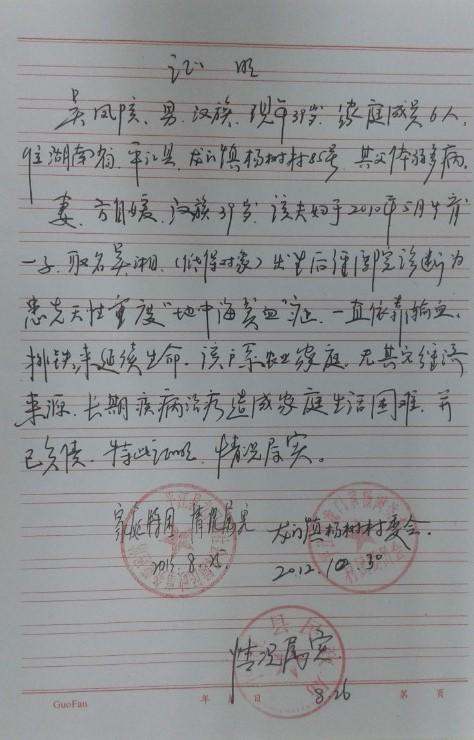 证 明
吴凤陔、男、汉族、现年39岁、家庭成员6人,
住湖南省、平江县、龙门镇杨树村85号、其父体弱多病。
妻、方月媛、汉族39岁、该夫妇于2010年5月生育
一子、取名吴湘、(低保对象)出生后经医院诊断为
患先天性重度"地中海贫血"症、一直依靠输血、
排铁、来延续生命、该户系农业家庭、无其它经济
来源、长期疾病治疗造成家庭生活困难、并
已负债、特此证明、情况属实。
家庭特困 情况属实
8.25
龙门镇杨树村委会.
2012.10.30
情况属实
8.26
GuoFan 年 月 日 第 页